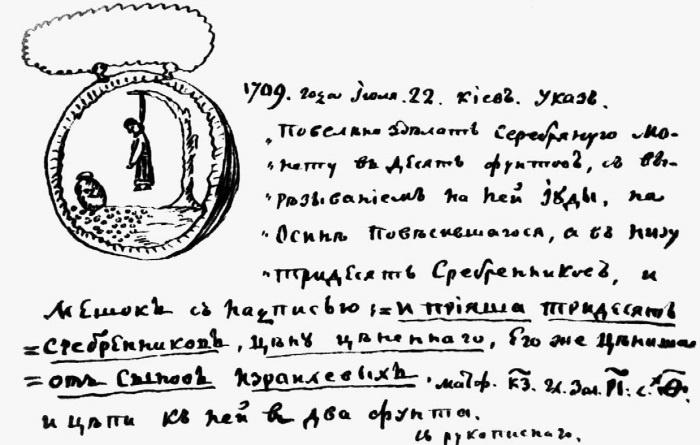 1709. года Iюля. 22. Кiевъ. Указъ.
„Повелено здѣлатъ Серебряную мо-
„нету въ десять фунтовъ, съ вы-
„рѣзыванiемъ на ней Iуды, на
„Осинѣ повѣсившагося, а въ низу
„тридесятъ Сребренниковъ, и
мешокъ съ надписью: =и прiяша тридесятъ
=Сребренниковъ, цѣну цѣненнаго, Его же цѣниша
=отъ Сыновъ Израилевыхъ. матф. КЗ. Гл. Зач.
и цѣпи къ ней въ два фунта.
съ рукописнаго.